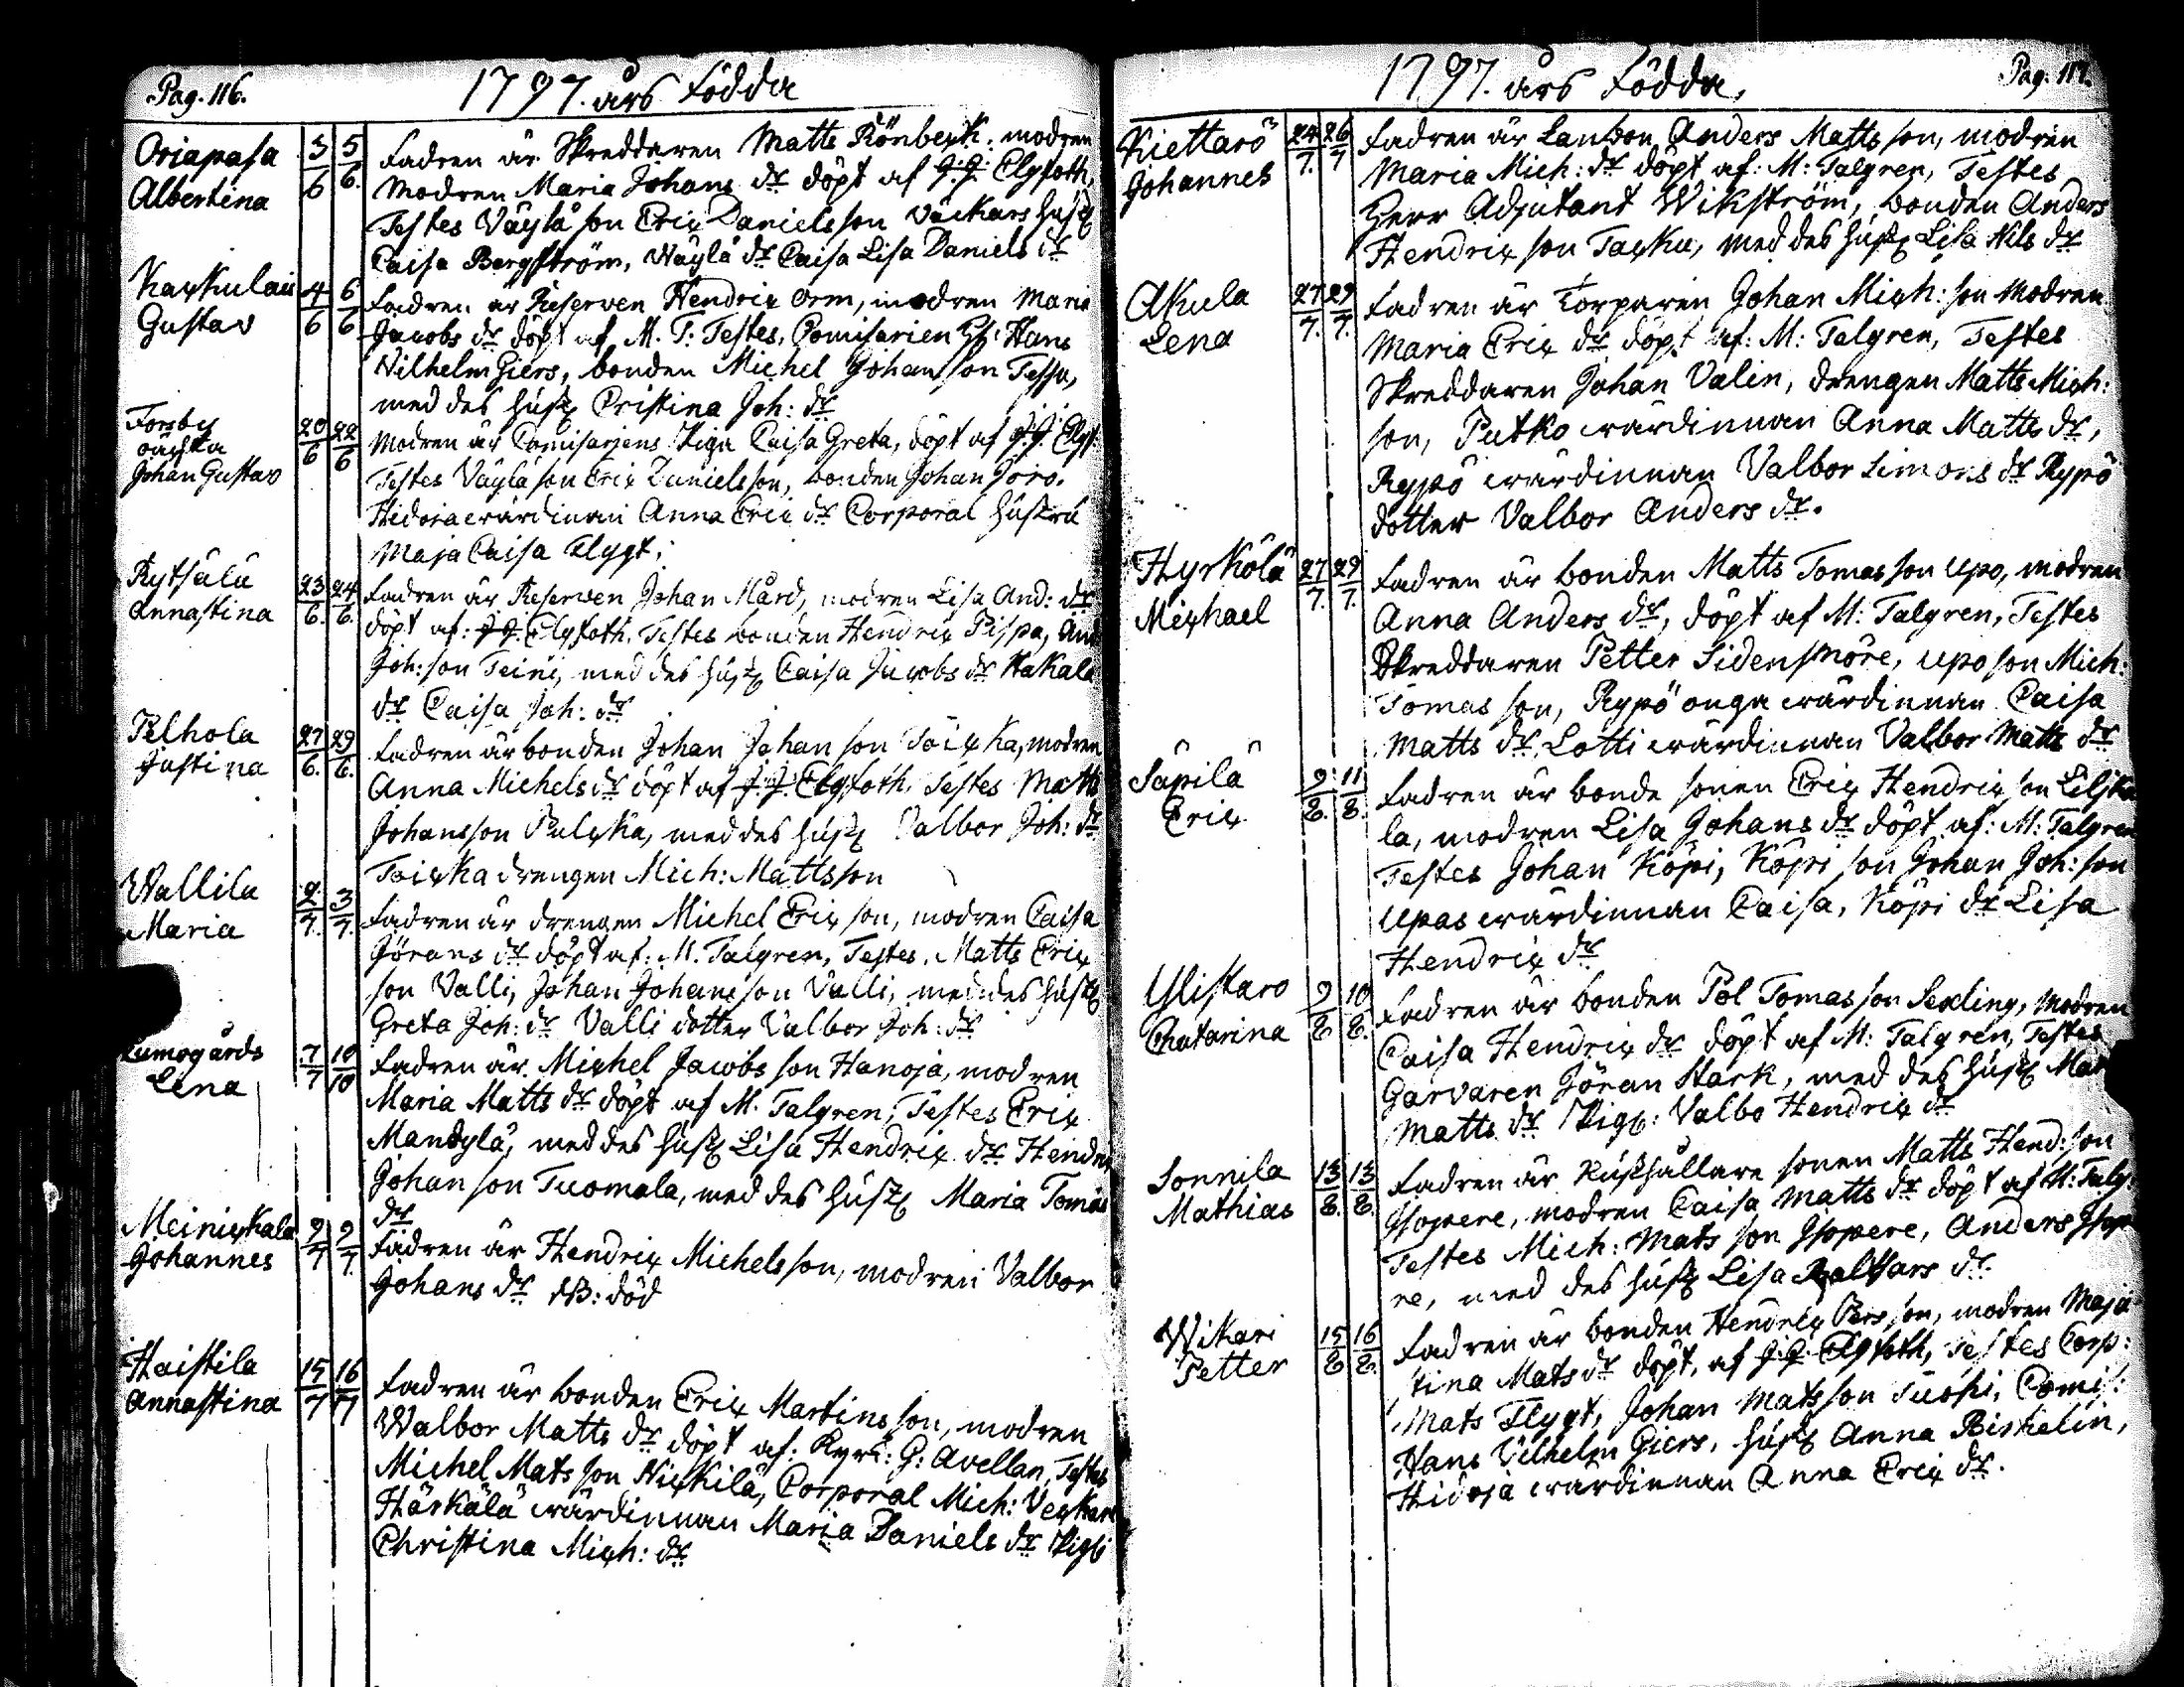 Pag. 116.
1797. års Födda
Oriapasa 3/6 5/6. Fadren är Skreddaren Matts Rönbeck: modren
Albertina modren Maria Johans dr döpt af J.J. Elgfoth,
Testes Väylä son Eric Danielsson Väckars hust
Caisa Bergström, Wäylä dr Caisa Lisa Daniels dr
4/6 6/6 Fadren är Reserven Hendric Orm, modren Maria
Gustav Jacobs dr döpt af M. T: Testes, Comisarien Hans
Vilhelm Giers, bonden Michel Johansson Tessa,
med des hust Cristina Joh: dr
Forsby 20/6 22/6 modren är Comisariens Piga Caisa Greta, döpt af J.J. Elgf:
Johan Gustav Testes Väylä son Eric Danielsson, bonden Johan Jöro.
Hidoja wärdinnan Anna Eric dr Corporal hustru
Maja Caisa Flygt.
Rytsälä 23/6. 24/6. Fadren är Reserven Johan Mård, modren Lisa And: dr
Annastina döpt af: J.J. Elgfoth. Testes bonden Hendric Pispa, And
Joh: son Teini, med des hust Caisa Jacobs dr Hakala
dr Caisa Joh: dr
Pelhola 27/6. 29/6. Fadren är bonden Johan Johansson Töicka, modren
Justina Anna Michels dr döpt af J.J. Elgfoth, Testes Matts
Johansson Pulcka, med des hust Valbor Joh: dr
Toicka drengen Mich: Mattsson
Wallila 2/7. 3/7. Fadren är drengen Michel Ericson, modren Caisa
Maria Jörans dr döpt af: M. Talgren, Testes, Matts Eric
son Valli, Johan Johansson Valli, med des hust
Greta Joh: dr Valli dotter Valbor Joh: dr
Lumogårds 7/7 10/10 Fadren är Michel Jacobs son Hanoja, modren
Lena Maria Matts dr döpt af M. Talgren, Testes Eric
Mandylä, med des hust Lisa Hendric dr Hendric
Johanson Tuomala, med des hust Maria Tomas
dr
Meinickala 9/7 9/7. Fadren är Hendric Michelsson, modren Valbor
Johannes Johans dr NB: död
Haistila 15/7 16/7 Fadren är bonden Eric Martinsson, modren
Annastina Walbor Matts dr döpt af: Kyrk: G: Avellan, Testes
Michel Matsson Nickilä, Corporal Mich: Veckare
Härkälä wärdinnan Maria Daniels dr Piga
Christina Mich: dr
1797. års Födda, Pag: 117.
Kiettarö 24/7. 26/7 Fadren är Landbon Anders Mattsson, modren
Johannes Maria Mich: dr döpt af: M: Talgren, Testes
Herr Adjutant Wikström, bonden Anders
Hendricson Tacku, med des hust Lisa Nils dr
Akula 27/7. 29/7. Fadren är Torparen Johan Mich: son modren
Lena Maria Eric dr döpt af: M: Talgren, Testes
Skreddaren Johan Valin, drengen Matts Mich:
son, Putko wärdinnan Anna Matts dr,
Rypö wärdinnan Valbor Simons dr Rypö
dotter Valbor Anders dr.
Hyrkölä 27/7. 29/7. Fadren är bonden Matts Tomasson Upo, modren
Michael Anna Anders dr, döpt af M: Talgren, Testes
Skreddaren Petter Sidensnöre, Upo son Mich:
Tomasson, Rypö onga wärdinnan Caisa
Matts dr, Lotti wärdinnan Valbor Matts dr
Säpilä 9/8. 11/8. Fadren är bonde sonen Eric Hendricson Liljka
Eric la, modren Lisa Johans dr döpt af: M: Talgren
Testes Johan Köpi, Köpi son Johan Joh: son
Upas wärdinnan Caisa, Köpi dr Lisa
Hendric dr
Ylistaro 9/8 10/8. Fadren är bonden Pol Tomasson Sexling, modren
Chatarina Caisa Hendric dr döpt af M: Talgren, Testes
Garvaren Jöran Stark, med des hust
Matts dr Pig: Valbo Hendric dr
Sonnila 13/8. 13/8. Fadren är Rusthållare sonen Matts Hend: son
Mathias Isopere, modren Caisa Matts dr döpt af M: Talg:
Testes Mich: Mats son Isopere, Anders Isope
re, med des hust Lisa Baltsars dr.
Wikari 15/8 16/8. Fadren är bonden Hendric Persson, modren Maja
Petter tina Mats dr döpt, af J.J. Elgfoth, Testes Corp:
Mats Flygt, Johan Matsson Tuoki, Comis:
Hans Vilhelm Giers, hust Anna Birkelin,
Hidoja wärdinnan Anna Eric dr.